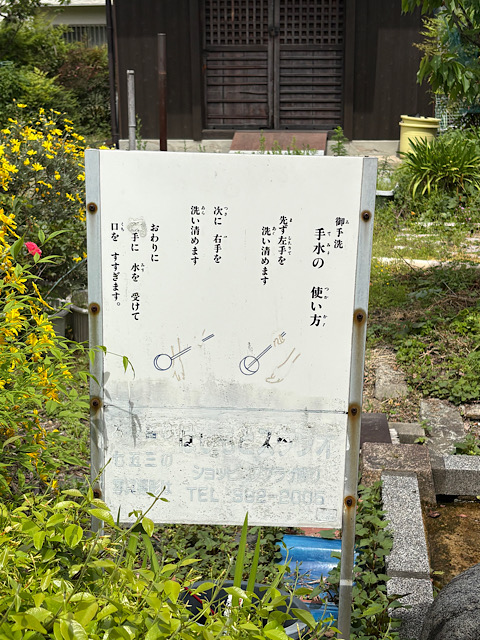 御手洗
手水の 使い方
先ず左手を
洗い清めます
次に 右手を
洗い清めます
おわりに
手に 水を 受けて
口を すすぎます。
七五三の
ショッピング
TEL 382-2005